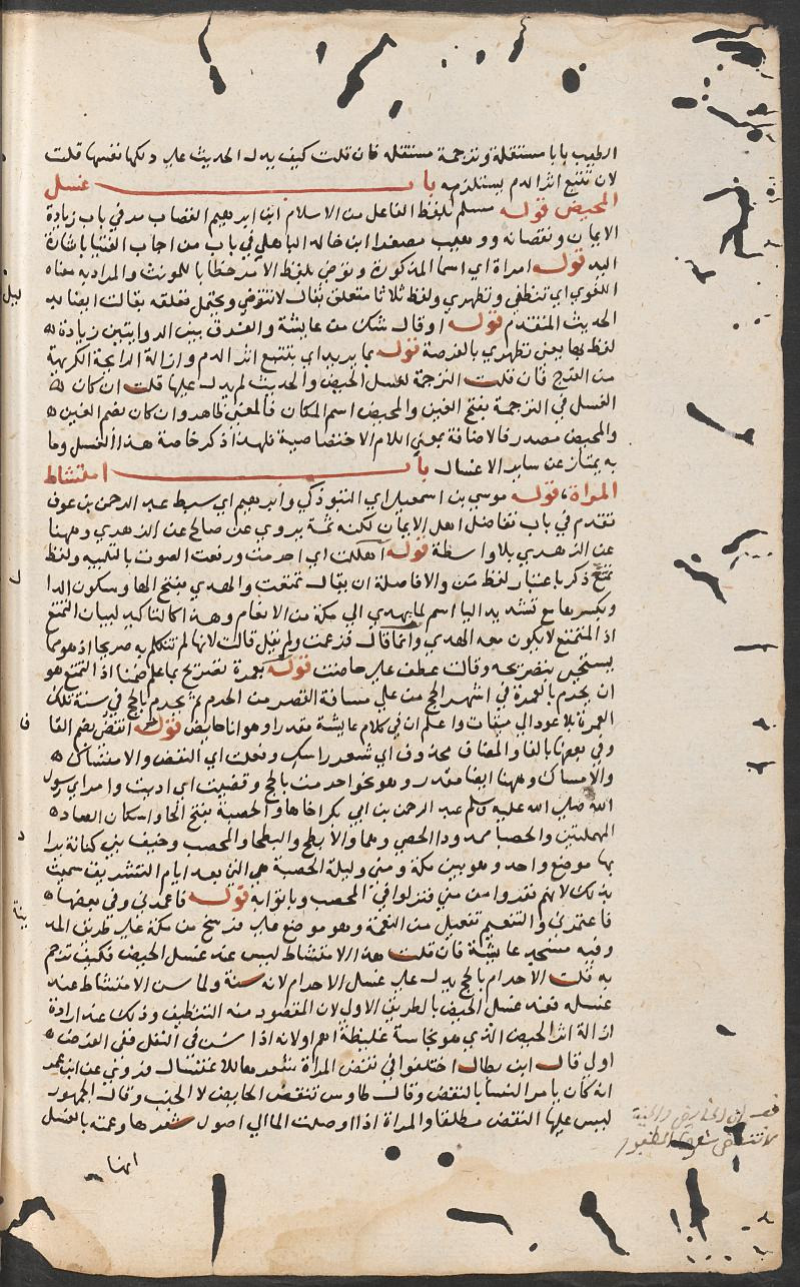 الطيب بابا مستقلة وترجمة مستقله فان قلت كيف يدل الحديث علي دلكها نفسها قلت
لان تتبع اثر الدم يستلزمه باب غسل
المحيض قوله مسلم بلفظ الفاعل من الاسلام ابن ابرهيم القصاب مر في باب زيادة
الايمان ونقصانه ووهيب مصغرا ابن خالد الباهلي في باب من اجاب الفتيا باشارة
اليد قوله امراة اي اسما المذكورة وتوضي بلفظ الامر خطابا للمونث والمراد به معناه
اللغوي اي تنظفي وتطهري ولفظ ثلاثا متعلق بقال لا بتوضي ويحتمل تعلقه بقالت ايضا لم
الحديث المتقدم قوله او قال شك من عايشة والفرق بين الروايتين زيادة ه
لفظ بها يعني تطهري بالفرصة قوله بما يريد اي بتتبع اثر الدم وازالة الرايحة الكريهة
من الفرج فان قلت الترجمة لغسل الحيض والحديث لم يدل عليها قلت ان كان ه
الغسل في الترجمة بفتح الغين والمحيض اسم المكان فالمعني ظاهر وان كان بضم الغين ه
والمحيض مصدر فالاضافة بمعني اللام الاختصاصية فلهذا ذكر خاصة هذا الغسل وما
به يمتاز عن ساير الاغسال باب امتشاط
المراة، قوله موسي بن اسمعيل اي التبوذكي وابرهيم اي سبط عبد الرحمن بن عوف
تقدم في باب تفاضل اهل الايمان لكنه ثمة يروي عن صالح عن الزهري وههنا
عن الزهري بلا واسطة قوله اهللت اي احرمت ورفعت الصوت بالتلبية ولفظ
تمتع ذكر باعتبار لفظ من والا فاصله ان يقال تمتعت والهدي بفتح الها وسكون الدا
وبكسرها مع تشديد اليا اسم لما يهدي الي مكة من الانعام وهذا كالتاكيد لبيان التمتع
اذ المتمتع لا يكون معه الهدي وانما قال فزعمت ولم يقل قالت لانها لم تتكلم به صريحا اذ هو مما
يستحيى بتصريحه وقالت عطف علي حاضت قوله بعمرة تصريح بما علم ضمنا اذ التمتع هو
ان يحرم بالعمرة في اشهر الحج من علي مسافة القصر من الحرم ثم يحرم بالحج في سنة تلك
العمرة بلا عود الي ميقات واعلم ان في كلام عايشة مقدرا وهو انا حايض قوله انقضي بضم القا
وفي بعضها بالفا والمضاف محذوف اي شعر راسك وفعلت اي النقض والامتشاط ه
والامساك وههنا ايضا مقدر وهو نحو احرمت بالحج وقضيت اي اديت وامر اي رسول
الله صلي الله عليه وسلم عبد الرحمن بن ابي بكر اخاها والحصبة بفتح الحا واسكان الصاد ه
المهملتين والحصبا ممدودا الحصي وهما والابطح والبطحا والمحصب وخيف بني كنانة يرا
بها موضع واحد وهو بين مكة ومني وليلة الحصبة هي التي بعد ايام التشريق سميت
بذلك لانهم نفروا من مني فنزلوا في المحصب وباتوا به قوله فاعمرني وفي بعضها ه
فاعتمرني والتنعيم تفعيل من النعمة وهو موضع علي فرسخ من مكة علي طريق المد
وفيه مسجد عايشة فان قلت هذا الامتشاط ليس عند غسل الحيض فكيف ترجم
به قلت الاحرام بالحج يدل علي غسل الاحرام لانه سنة ولما سن الامتشاط عند
غسله فعند غسل الحيض بالطريق الاولي لان المقصود منه التنظيف وذلك عند ارادة
ازالة اثر الحيض الذي هو نجاسة غليظة اهم او لانه اذا سن في النفل ففي الفرض ه
اولي قال ابن بطال اختلفوا في نقض المراة شعرها للاغتسال فروي عن ابن عمر
انه كان يامر النسا بالنقض وقال طاوس تنقض الحايض لا الجنب وقال الجمهور
ليس عليها النقض مطلقا والمراة اذا اوصلت الما الي اصول شعرها وعمته بالغسل
انها